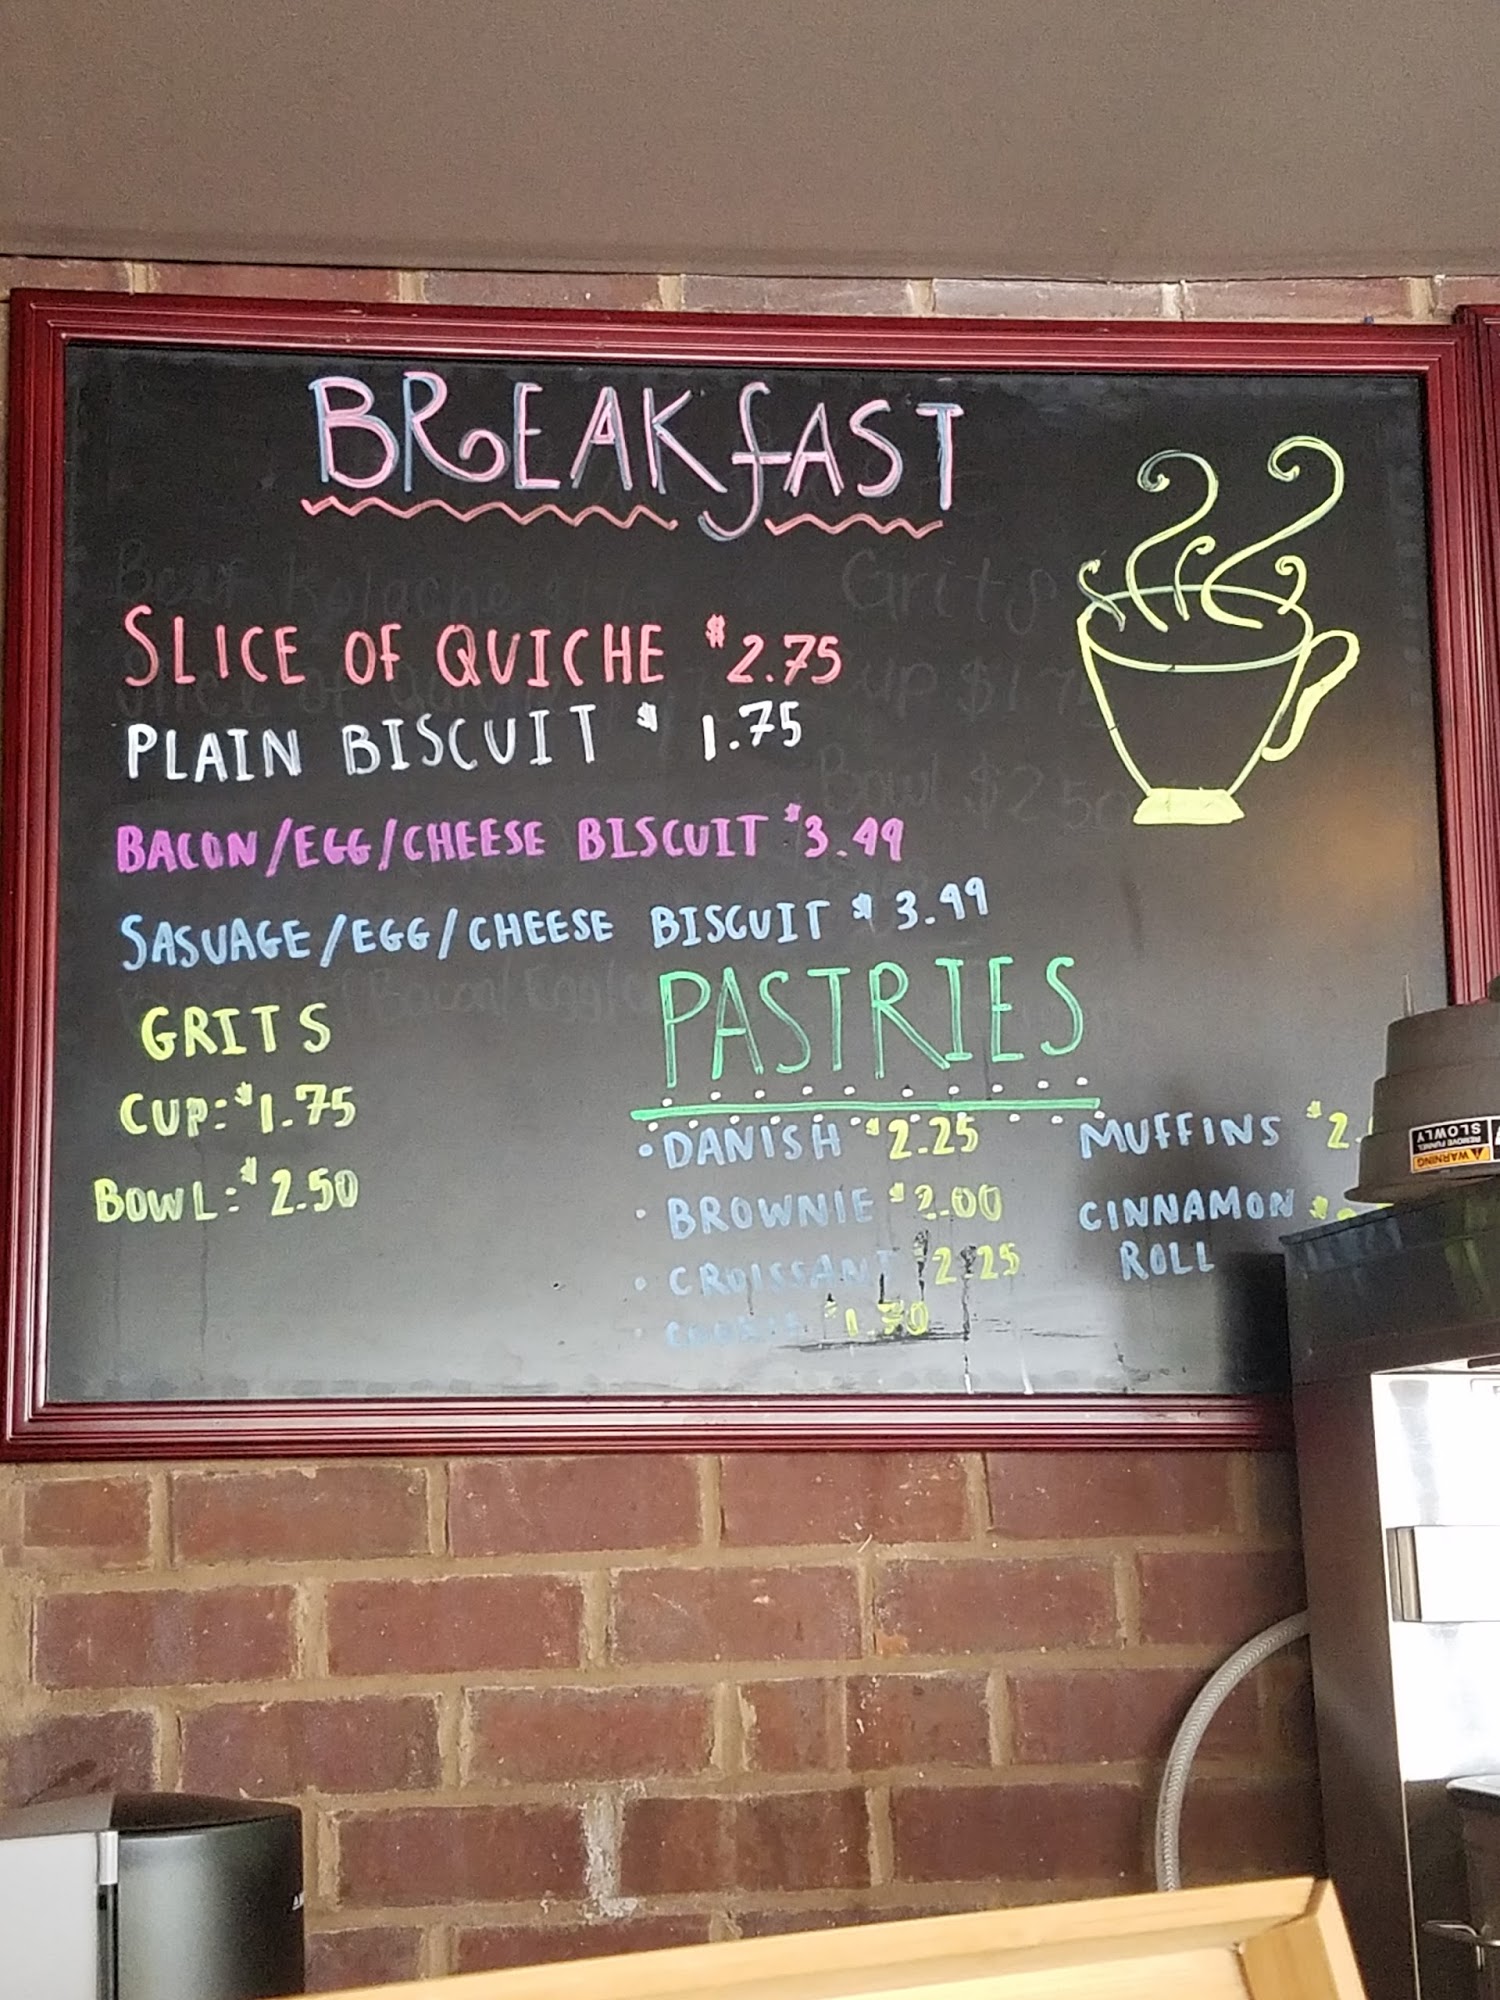 BREAKfAST
SLICE OF QUICHE $2.75
PLAIN BISCUIT $1.75
BACON/EGG/CHEESE BISCUIT $3.49
SASUAGE/EGG/CHEESE BISCUIT $3.49
GRITS
CUP: $1.75
BOWL: $2.50
PASTRIES
• DANISH $2.25
• BROWNIE $2.00
• CROISSANT $2.25
• COOKIE
MUFFINS $2.
CINNAMON
ROLL
WARNING
REMOVE FUNNEL
SLOWLY
Grits
Bowl $2.50